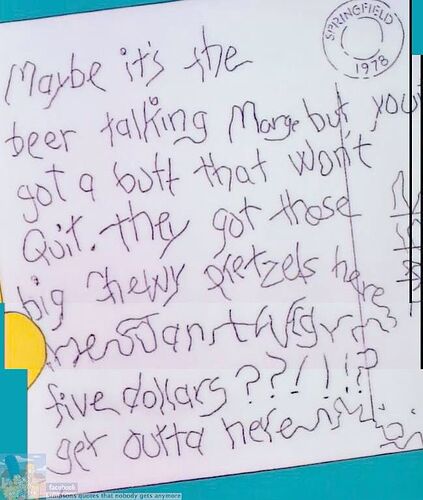 SPRINGFIELD
1978
Maybe it's the
beer talking Marge but you
got a butt that won't
Quit. They got those
big chewy pretzels here
five dollars??!!!?
get outta here
facebook
Simpsons quotes that nobody gets anymore